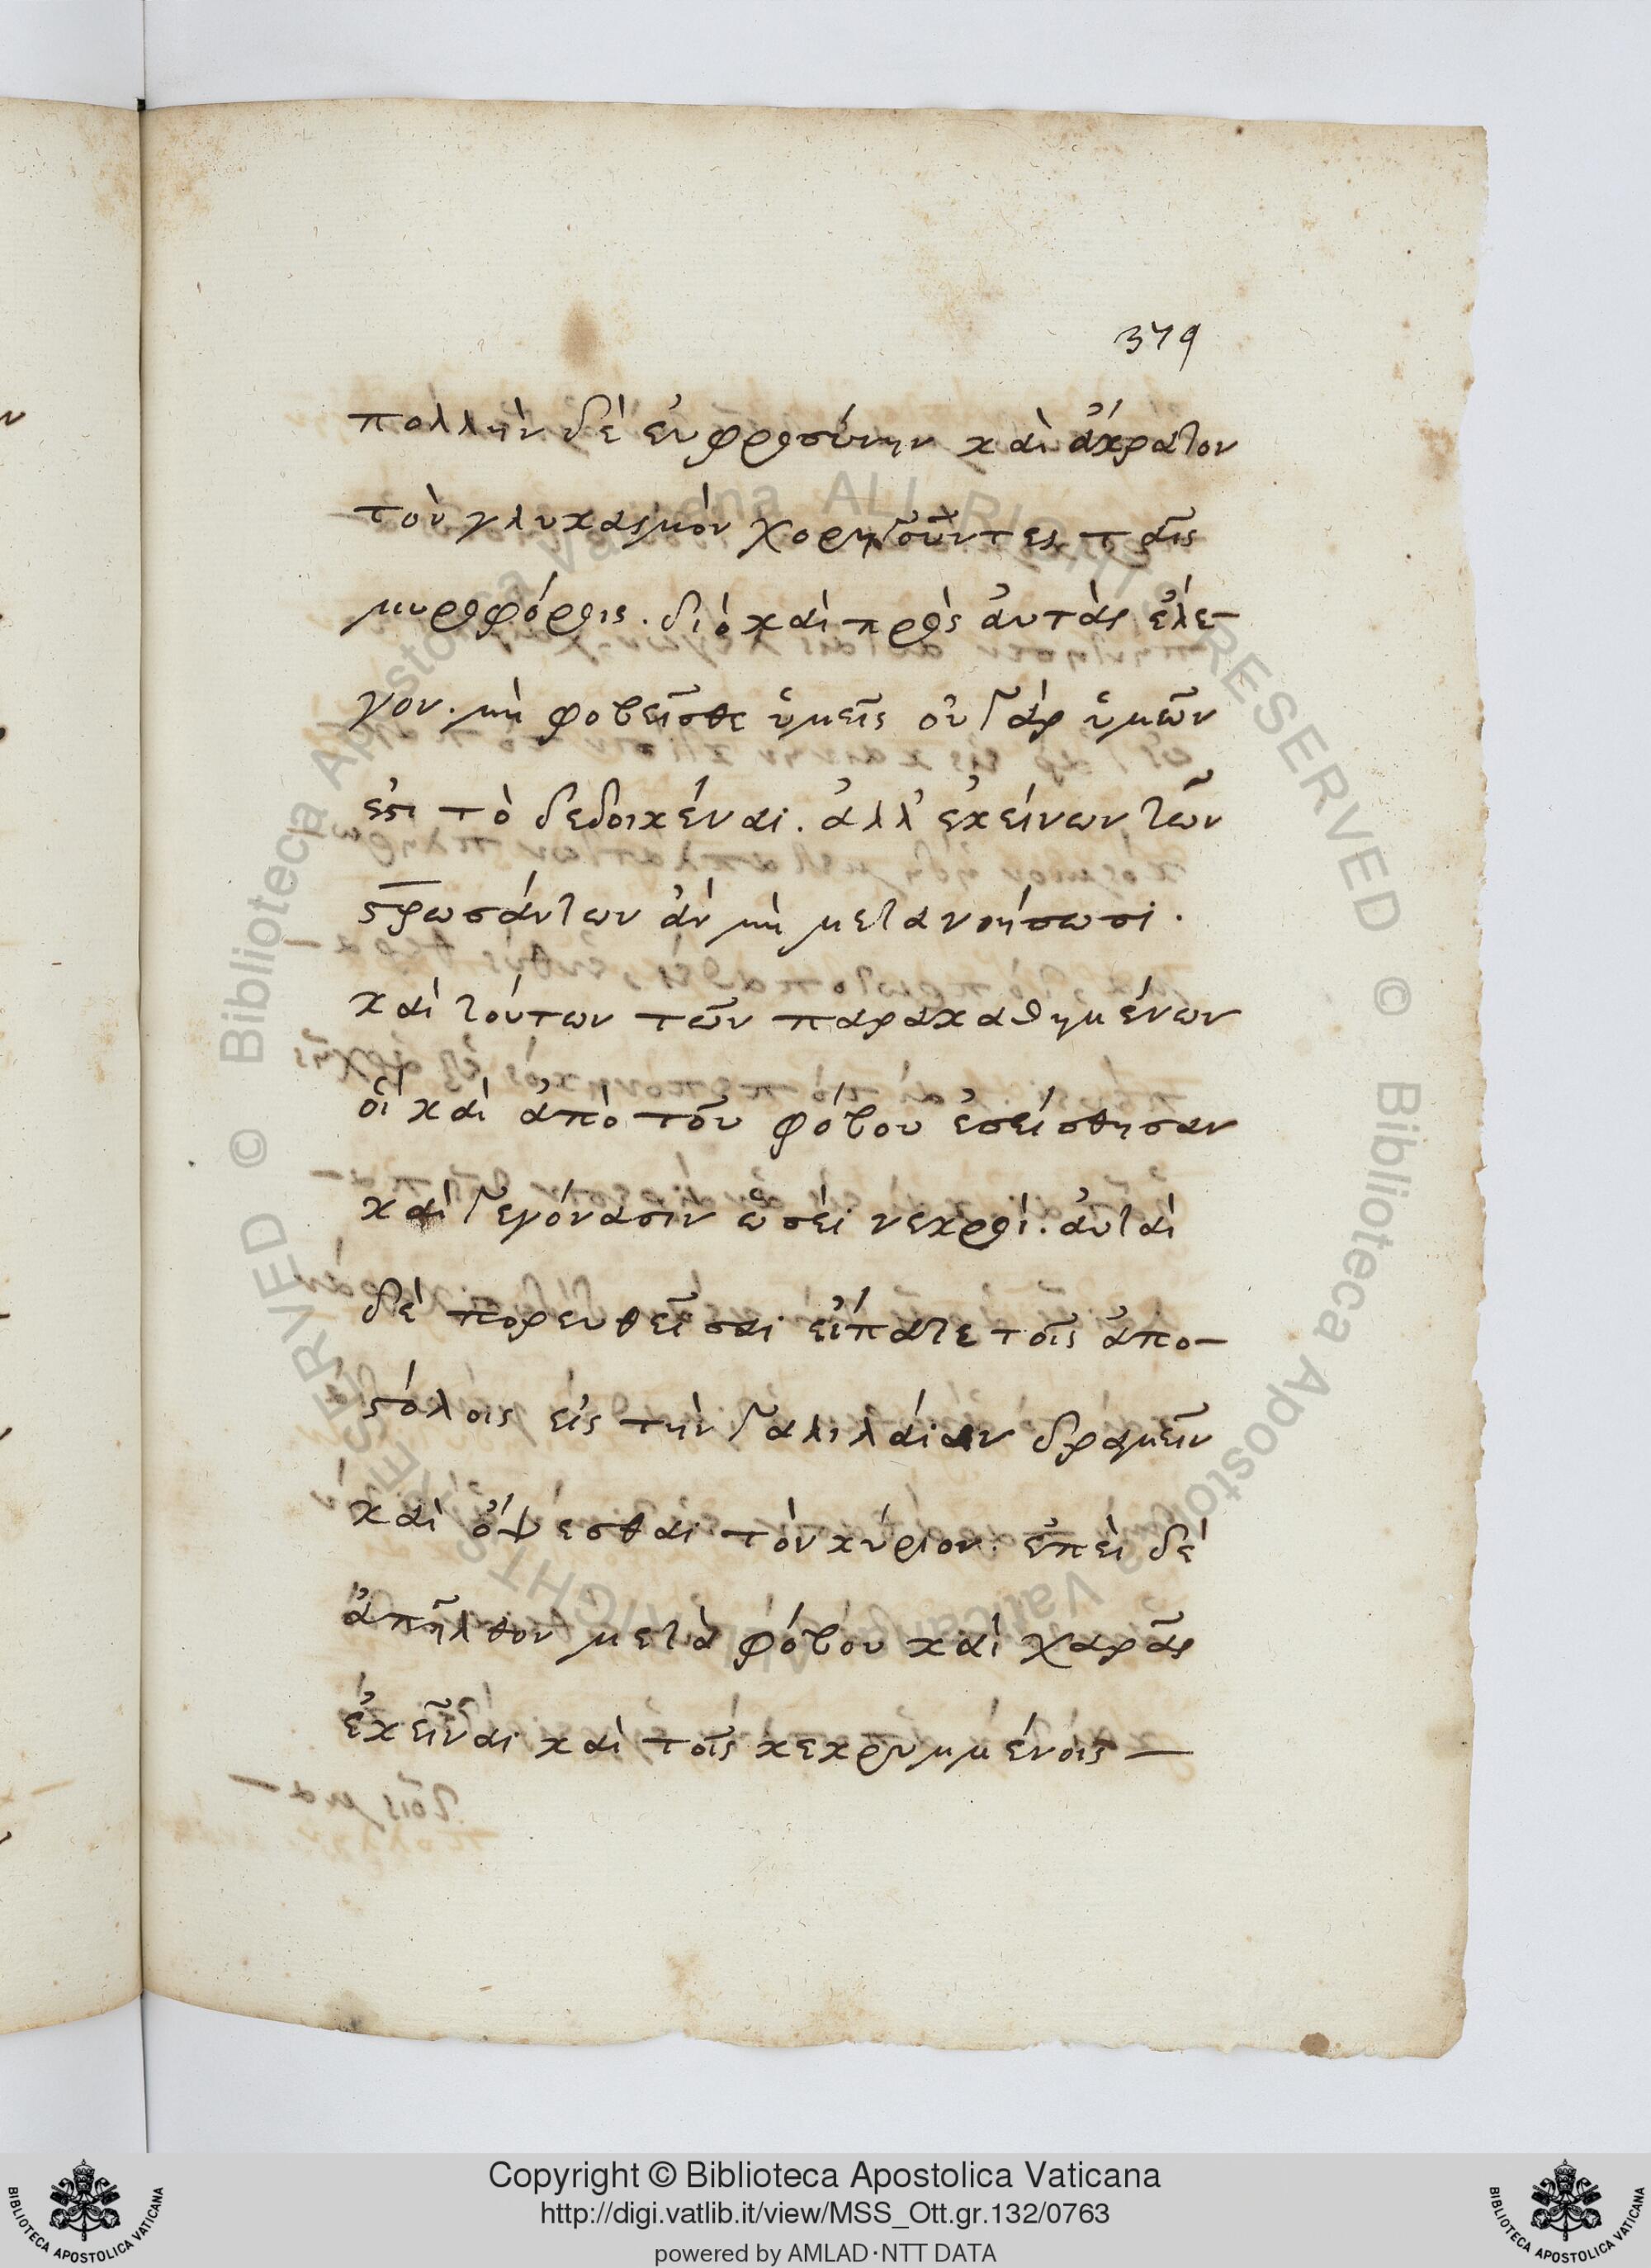 379
πολλὴν δὲ εὐφροσύνην καὶ ἄκρατον
τὸν γλυκασμὸν χορηγοῦντες ταῖς
μυροφόροις. διὸ καὶ πρὸς ἀυτὰς ἐλε-
γον. μὴ φοβεῖσθε ὑμεῖς οὐ γὰρ ὑμῶν
ἐστι τὸ δεδοικέναι. ἀλλ' ἐκείνων τῶν
στρωσάντων ἀν μὴ μετανοήσωσι.
καὶ τούτων τῶν παρακαθημένων
οἳ καὶ ἀπὸ τοῦ φόβου ἐσείσθησαν
καὶ γεγόνασιν ὡσεὶ νεκροί. ἀυταὶ
δὲ πορευθεῖσαι εἴπατε τοῖς ἀπο-
στόλοις εἰς τὴν γαλιλάιαν δραμεῖν
καὶ ὄψεσθαι τὸν κύριον. ἐπεὶ δὲ
ἀπῆλθον μετὰ φόβου καὶ χαρᾶς
ἐκεῖναι καὶ τοῖς κεκρυμμένοις —
Copyright © Biblioteca Apostolica Vaticana
http://digi.vatlib.it/view/MSS_Ott.gr.132/0763
powered by AMLAD·NTT DATA
BIBLIOTECA APOSTOLICA VATICANA
BIBLIOTECA APOSTOLICA VATICANA